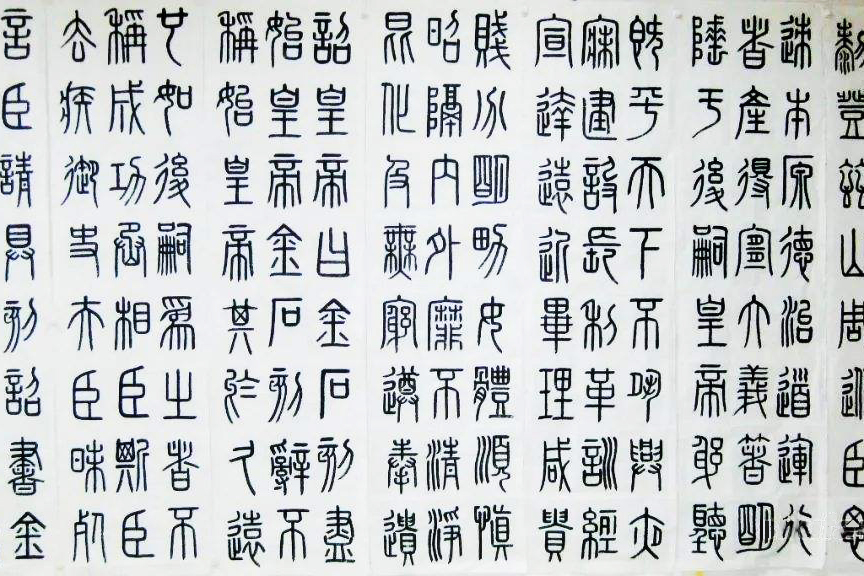 登茲山周巡臣思
迹本原德治道運行
者產得宜大義著明
陲于後嗣皇帝躬聽
既平天下不興夜
寐建設長利革訓經
宣達遠近畢理咸貴
賤分明男女體順慎
昭隔內外靡不清淨
昆化及無窮遵奉遺
詔皇帝曰金石刻盡
始皇帝金石刻辭不
稱始皇帝其於久遠
也如後嗣為之者不
稱成功丞相臣斯臣
去疾御史夫臣昧死
言臣請具刻詔書金